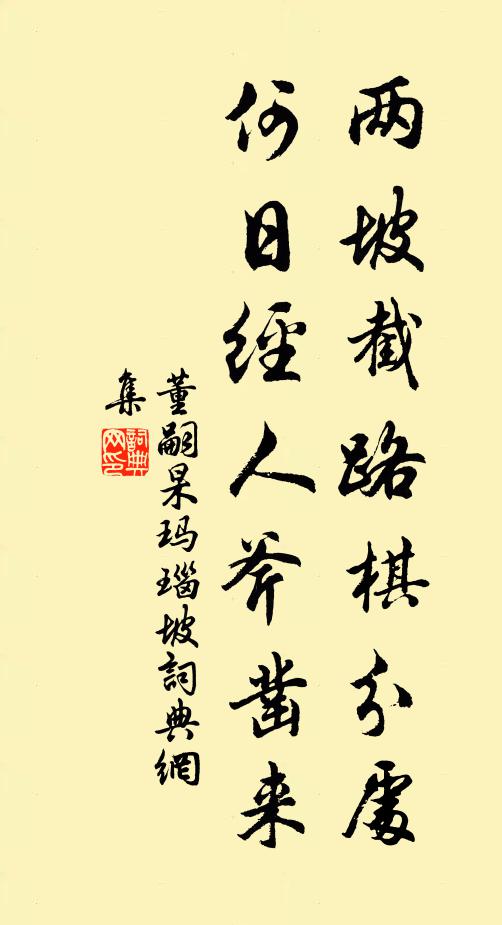 两坡截路棋分處
何日經人斧凿来
董嗣杲玛瑙坡詞典網
集
詞典网印